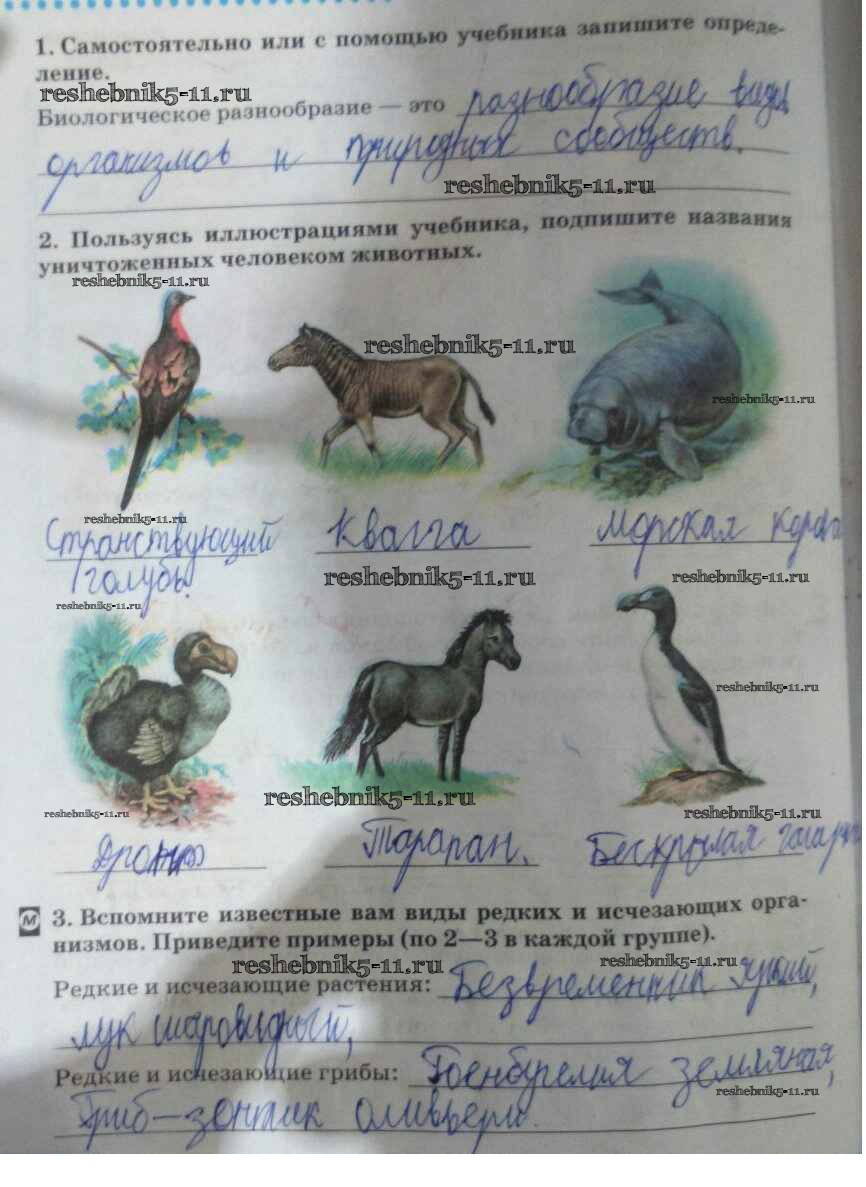 1. Самостоятельно или с помощью учебника запишите опреде-
ление.
reshebnik5-11.ru
Биологическое разнообразие — это разнообразие виды
организмов и природных сообществ.
reshebnik5-11.ru
2. Пользуясь иллюстрациями учебника, подпишите названия
уничтоженных человеком животных.
reshebnik5-11.ru
reshebnik5-11.ru
reshebnik5-11.ru
reshebnik5-11.ru
Странствующий Квагга Морская корова
голубь.
reshebnik5-11.ru reshebnik5-11.ru
reshebnik5-11.ru
reshebnik5-11.ru
reshebnik5-11.ru
reshebnik5-11.ru reshebnik5-11.ru
Тарапан. Бескрылая
м 3. Вспомните известные вам виды редких и исчезающих орга-
низмов. Приведите примеры (по 2—3 в каждой группе).
reshebnik5-11.ru reshebnik5-11.ru
Редкие и исчезающие растения: Безвременник яркий,
лук шаровидный,
Редкие и исчезающие грибы: Гоенбуелия земляная,
reshebnik5-11.ru
Гриб-зонтик оливьери.